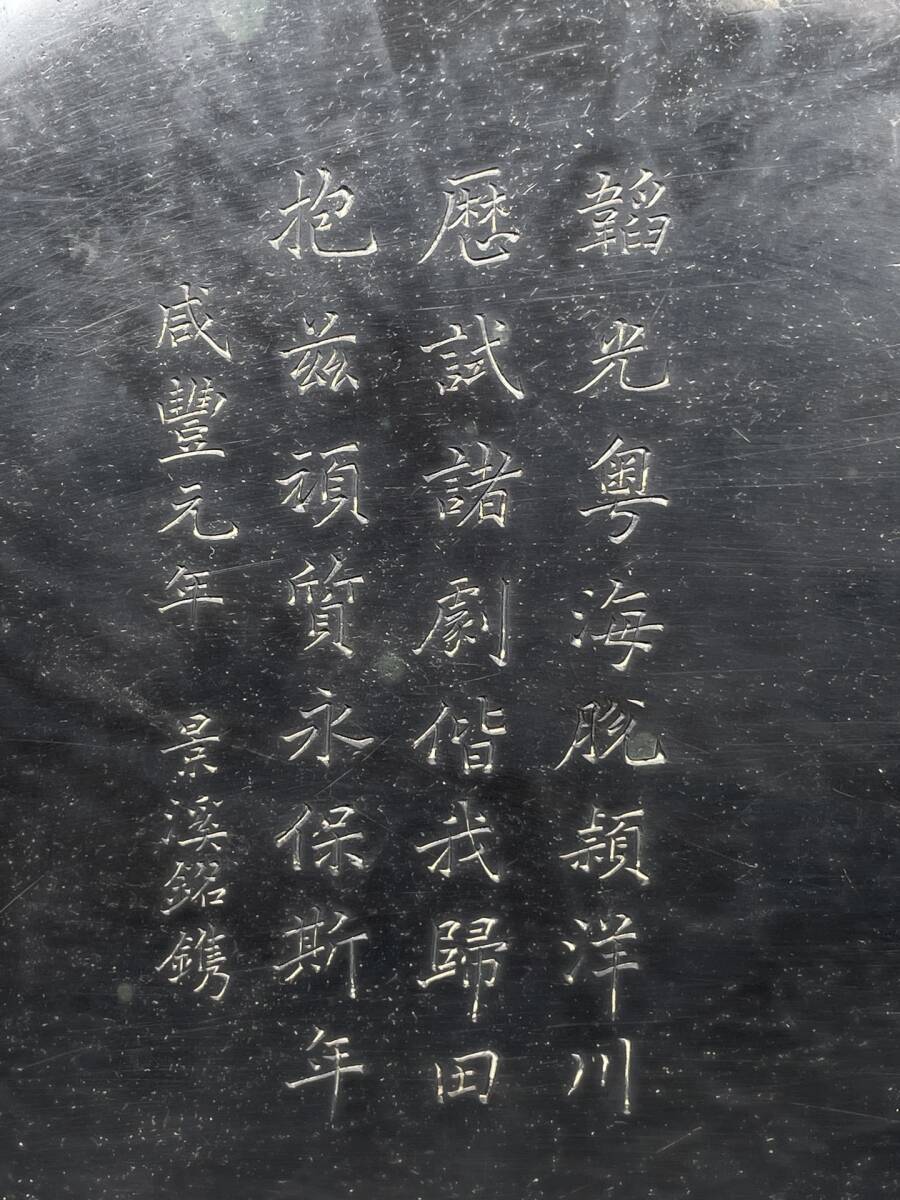 韜光粵海脫穎洋川
歴試諸劇偕我歸田
抱兹頑質永保斯年
咸豐元年 景溪銘鐫